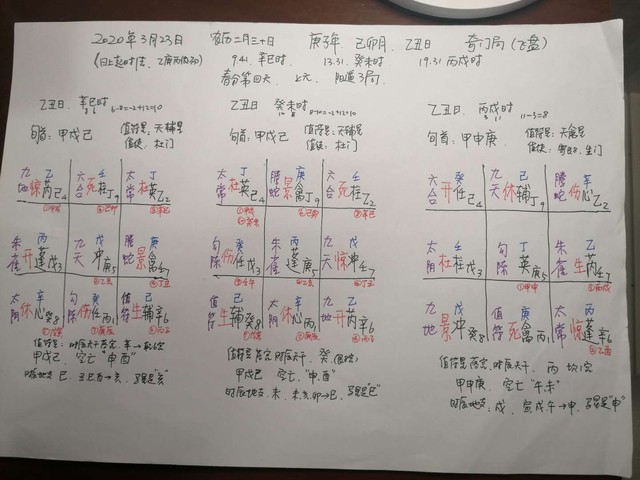 2020年3月23日 农历二月三十日 庚子年、己卯月、乙丑日 奇门局(飞盘)
9:41. 辛巳时 13:31. 癸未时 19:31 丙戌时
春分第四天 上元 阳遁3局
乙丑日、辛巳时 6-8=-2+12=10
旬首:甲戌己 值符星:天辅星
值使:杜门
九地 惊 乙 芮 己4
六合 死 壬 柱 丁9
太常 杜 丁 英 乙2
朱雀 开 丙 蓬 戊3
九天 戊 冲 庚5
螣蛇 景 癸 禽 壬7
太阴 休 辛 心 癸8
勾陈 伤 庚 任 丙1
值符 生 己 辅 辛6
值符:时辰天干落宫、辛→乾6宫
甲戌己,空亡"申酉"
时辰地支 巳、丑巳酉→亥、马星是"亥"
乙丑日 癸未时 8-10=-2+12=10
旬首:甲戌己 值符星:天辅星
值使:杜门
太常 杜 丁 英 己4
螣蛇 景 庚 禽 丁9
六合 死 壬 柱 乙2
勾陈 伤 癸 任 戊3
朱雀 丙 蓬 庚5
九天 惊 戊 冲 壬7
值符 生 己 辅 癸8
太阴 休 辛 心 丙1
九地 开 乙 芮 辛6
值符星落宫、时辰天干、癸
甲戌己 空亡、"申酉"
时辰地支、未、亥未卯→巳、马星是"巳"
乙丑日、丙戌时 11-3=8
旬首:甲申庚 值符星:天禽星
六合 开 癸 任 己4
九天 休 己 辅 丁9
螣蛇 伤 辛 心 乙2
太阴 杜 壬 柱 戊3
勾陈 丁 英 庚5
朱雀 生 乙 芮 壬7
九地 景 戊 冲 癸8
值符 死 庚 禽 丙1
太常 惊 丙 蓬 辛6
值符星落宫、时辰天干、丙 坎1宫
甲申庚 空亡"午未"
时辰地支:戌、寅戌午→申、马星是"申"